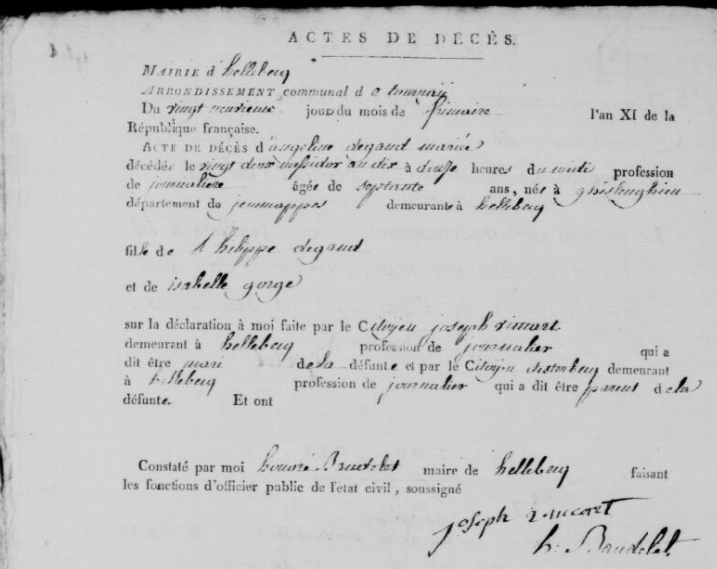 ACTES DE DÉCÈS.
MAIRIE d'hellebecq
ARRONDISSEMENT communal d e tournaij
Du vingt neuvieme jour du mois de frimaire l'an XI de la
République française.
ACTE DE DÉCÈS d'angeline degand mariée
décédée le vingt deux messidor an dix à douse heures du midi profession
de journaliere âgée de septante ans, née à ghislenghien
département de jemmappes demeurante à hellebecq
fille de Philippe degand
et de isabelle gorge
sur la déclaration à moi faite par le Citoyen joseph
demeurant à hellebecq profession de journalier qui a
dit être mari de la défunte et par le Citoyen demeurant
à hellebecq profession de journalier qui a dit être parent de la
défunte. Et ont
Constaté par moi honoré Baudelet maire de hellebecq faisant
les fonctions d'officier public de l'état civil, soussigné
joseph
h. Baudelet